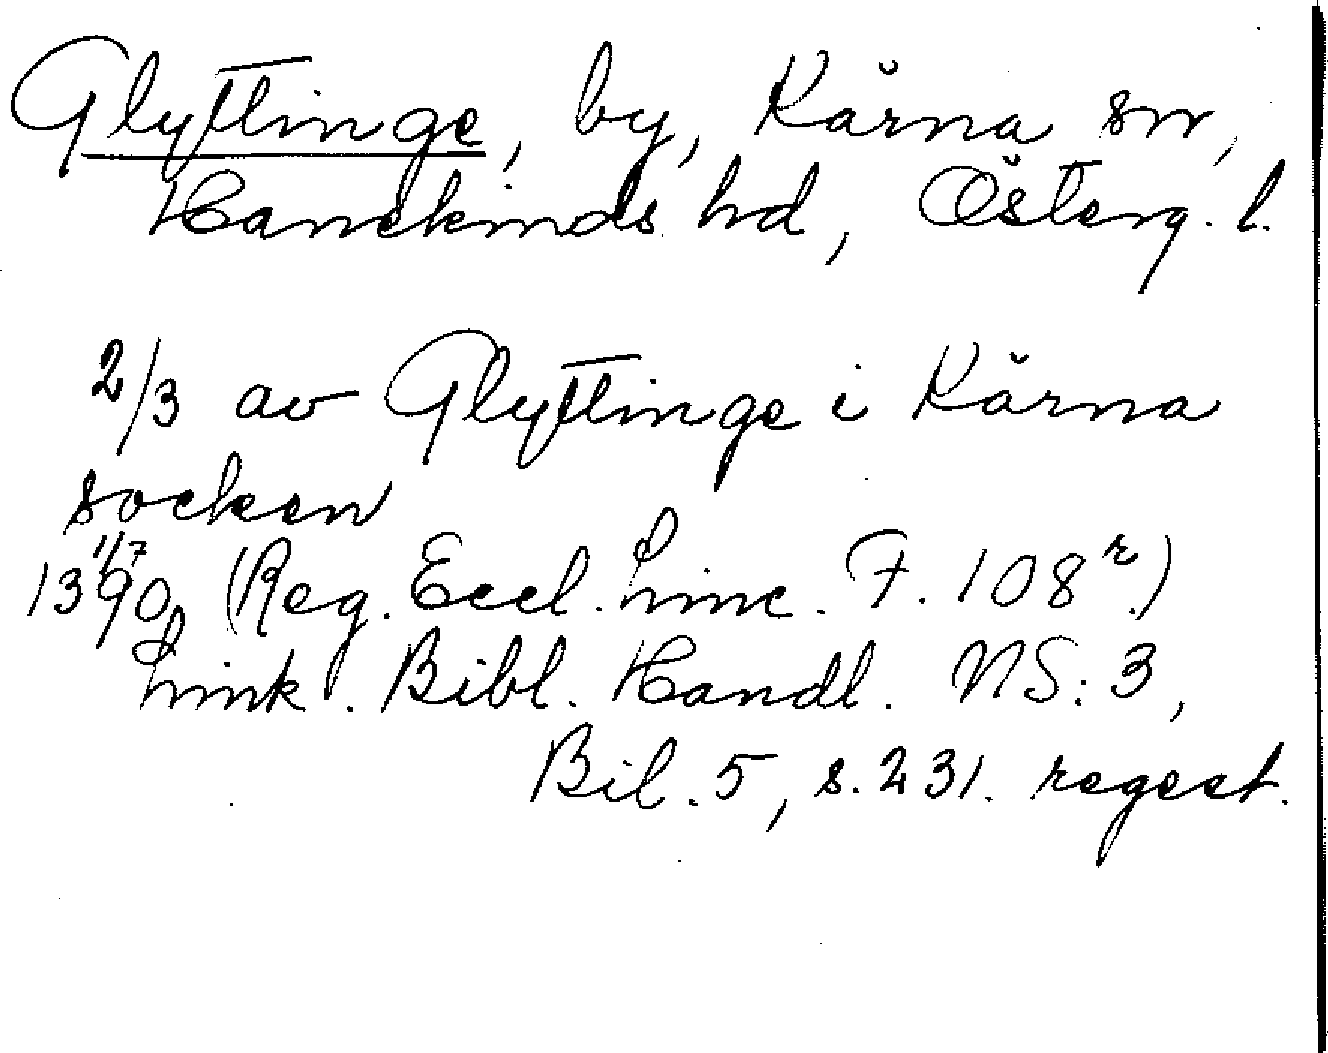 Glyttinge, by, Kärna sn,
Hanekinds hd, Österg. l.
2/3 av Glyttinge i Kärna
socken
1390 1/7 (Reg. Eccl. Linc. F. 108r.)
Link. Bibl. Handl. NS: 3,
Bil. 5, s. 231. regest.